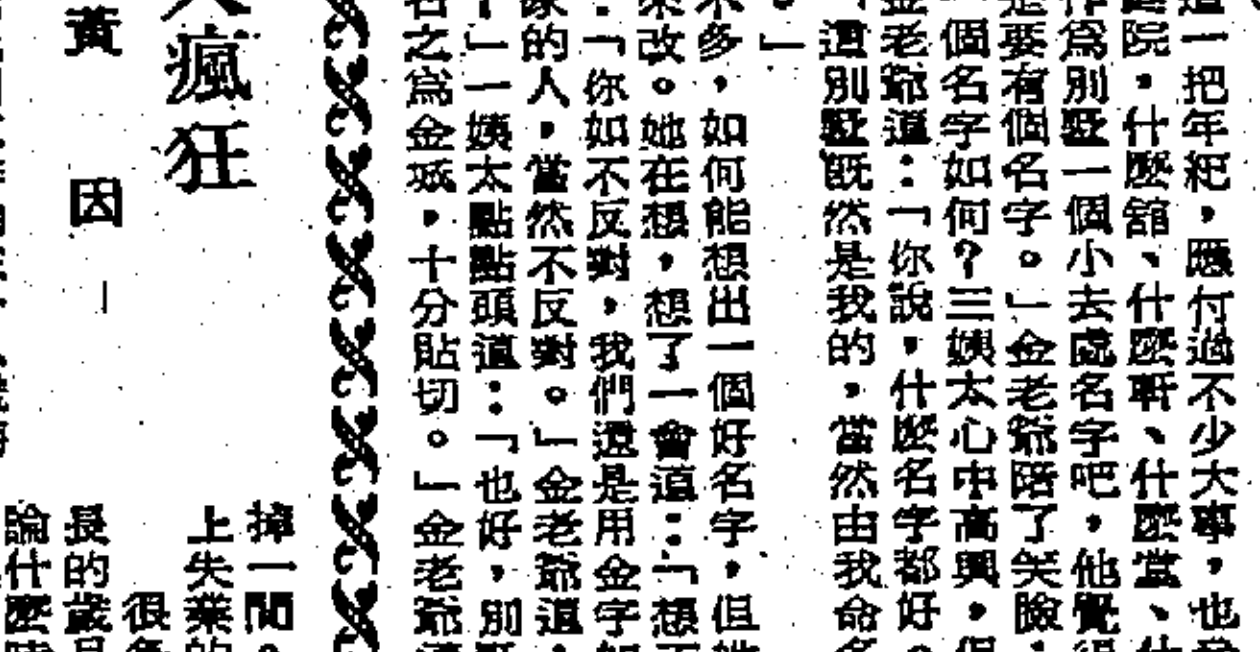 這一把年紀，應付過不少大事，也
庭院，什麼舘、什麼軒、什麼堂、什
作爲別墅一個小去處名字吧，他覺得
是要有個名字。」金老爺陪了笑臉，
個名字如何？三姨太心中高興，但
金老爺道：「你說，什麼名字都好。
「這別墅旣然是我的，當然由我命名
。」
不多，如何能想出一個好名字，但她
來改。她在想，想了一會道：「想不
：「你如不反對，我們還是用金字如
家的人，當然不反對。」金老爺道：
」一姨太點點頭道：「也好，別墅
名之爲金城，十分貼切。」金老爺道
瘋狂
黃因
掉一間。
上失業的
很多
長的歲月
論什麼時